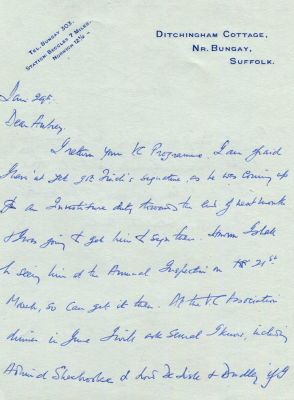 TEL. BUNGAY 303.
STATION: BECCLES 7 MILES.
NORWICH 12½ "
DITCHINGHAM COTTAGE,
NR. BUNGAY,
SUFFOLK.
Dear Aubrey,
I return your VC Programme. I am afraid
I haven't yet got signature, as he was coming up
for an Investiture duty towards the end of next month
& I was going to get him to sign then. I
be seeing him at the Annual Inspection on 21st
March, so can get it then. At the VC Association
dinner in June I will ask several I know, including
Admiral Sherbrooke & Lord De Lisle & Dudley, if I